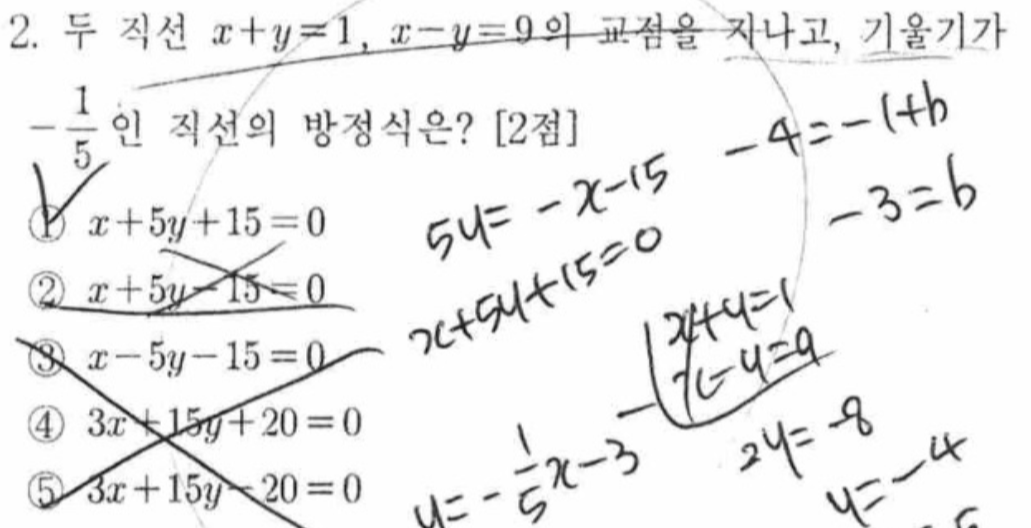 2. 두 직선 x+y=1, x-y=9의 교점을 지나고, 기울기가
-1/5인 직선의 방정식은? [2점]
① x+5y+15=0
② x+5y-15=0
③ x-5y-15=0
④ 3x+15y+20=0
⑤ 3x+15y-20=0
-4=-1+b
-3=b
5y=-x-15
x+5y+15=0
x+y=1
- x-y=9
2y=-8
y=-4
y=-1/5x-3